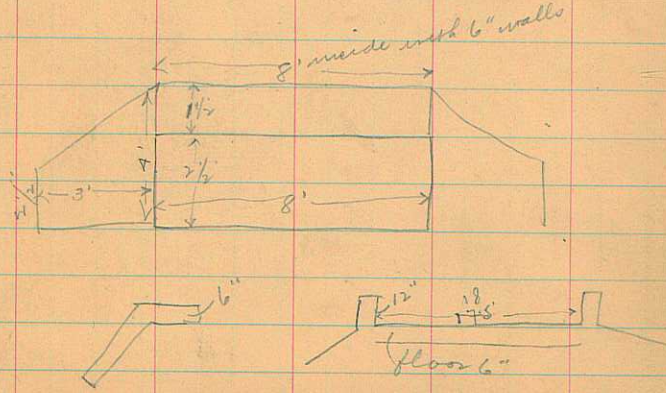 8' inside with 6" walls
1½
4'
2½
3'
8'
6"
12"
18
17.5
floor 6"